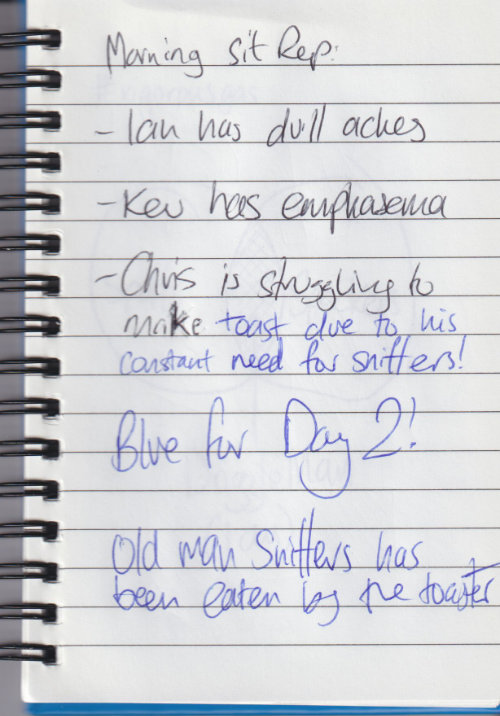 Morning Sit Rep:
- Ian has dull aches
- Kev has emphasema
- Chris is struggling to
make toast due to his
constant need for snifters!
Blue for Day 2!
Old man Snifters has
been eaten by the toaster